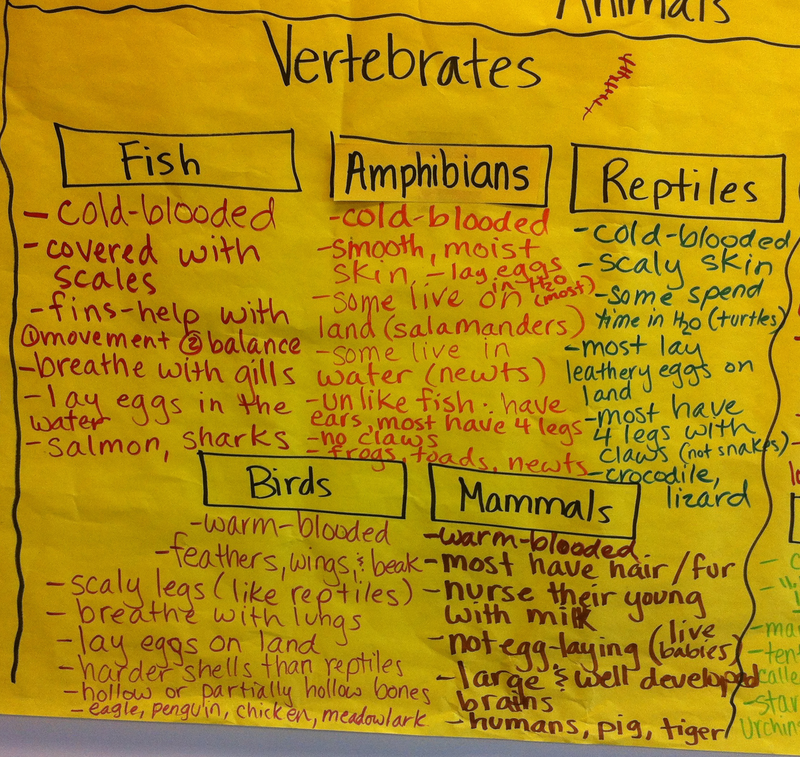 Animals
Vertebrates
Fish
- cold-blooded
- covered with
scales
- fins-help with
①movement ②balance
- breathe with gills
- lay eggs in the
water
- salmon, sharks
Amphibians
- cold-blooded
- smooth, moist
skin - lay eggs
in H2O
(most)
- some live on
land (salamanders)
- some live in
water (newts)
- unlike fish: have
ears, most have 4 legs
- no claws
- frogs, toads, newts
Reptiles
- cold-blooded
- scaly skin
- some spend
time in H2O (turtles)
- most lay
leathery eggs on
land
- most have
4 legs with
claws (not snakes)
- crocodile,
lizard
Birds
- warm-blooded
- feathers, wings, & beak
- scaly legs (like reptiles)
- breathe with lungs
- lay eggs on land
- harder shells than reptiles
- hollow or partially hollow bones
- eagle, penguin, chicken, meadowlark
Mammals
- warm-blooded
- most have hair/fur
- nurse their young
with milk
- not egg-laying (live
babies)
- large & well developed
brains
- humans, pig, tiger